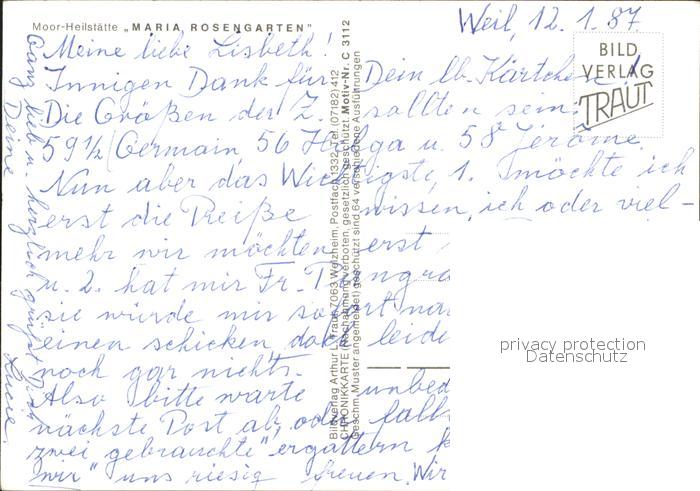 Moor-Heilstätte „MARIA ROSENGARTEN"
Weil, 12. 1. 87.
BILD
VERLAG
TRAUT
Meine liebe Lisbeth!
Innigen Dank für Dein lb. Kärtchen!
Die Größen der Z. sollten sein:
59½ Germain, 56 Helga u. 58 Jérome.
Nun aber das Wichtigste, 1. möchte ich
erst die Preiße wissen, ich oder viel-
mehr wir möchten erst
u. 2. hat mir Fr.
sie würde mir sofort
einen schicken, doch leide
noch gar nichts.
Also bitte warte unbed
nächste Post ab, oder falls
zwei gebrauchte" ergattern k
wir" uns riesig freuen. Wir
Ganz lieb u. herzlich grüßt Dich
Deine
Lucie.
Bildverlag Arthur F. Traut, 7063 Welzheim, Postfach 1332, Tel. (07182) 412
CHRONIKKARTE (Nachahmung verboten, gesetzlich geschützt. Motiv-Nr. C 3112
Geschm. Muster angemeldet) geschützt sind 64 verschiedene Ausführungen
privacy protection
Datenschutz